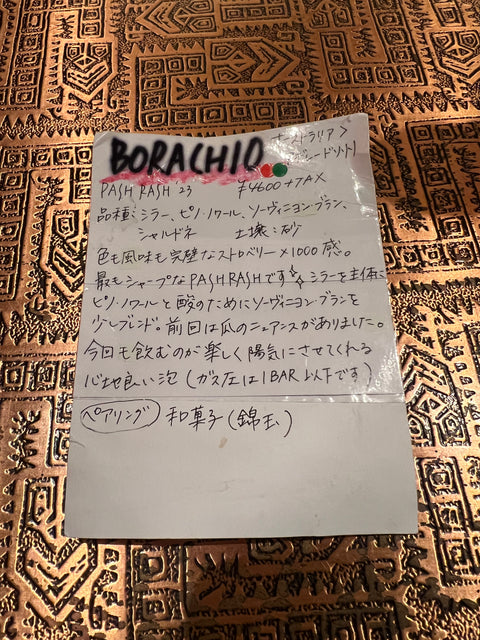 BORACHIO
オーストラリア>
アデレードヒルズ
PASH RASH '23 ¥4600+TAX
品種:シラー、ピノ・ノワール、ソーヴィニヨン・ブラン、
シャルドネ 土壌:砂
色も風味も完璧なストロベリー×1000感。
最もシャープなPASHRASHです シラーを主体に
ピノ・ノワールと酸のためにソーヴィニヨン・ブランを
少しブレンド。前回は瓜のニュアンスがありました。
今回も飲むのが楽しく陽気にさせてくれる
心地良い泡(ガス圧は1BAR以下です)
ペアリング 和菓子(錦玉)